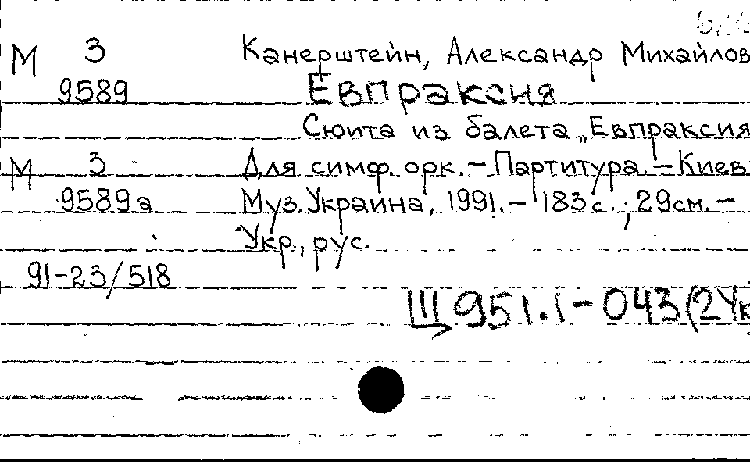 М 3 Канерштейн, Александр Михайлов
9589 Евпраксия
Сюита из балета „Евпраксия
М 3 Для симф. орк. – Партитура – Киев
9589а Муз. Украина, 1991. – 183 с.; 29см. –
Укр., рус.
91-23/518
Щ951.1-043(2Ук